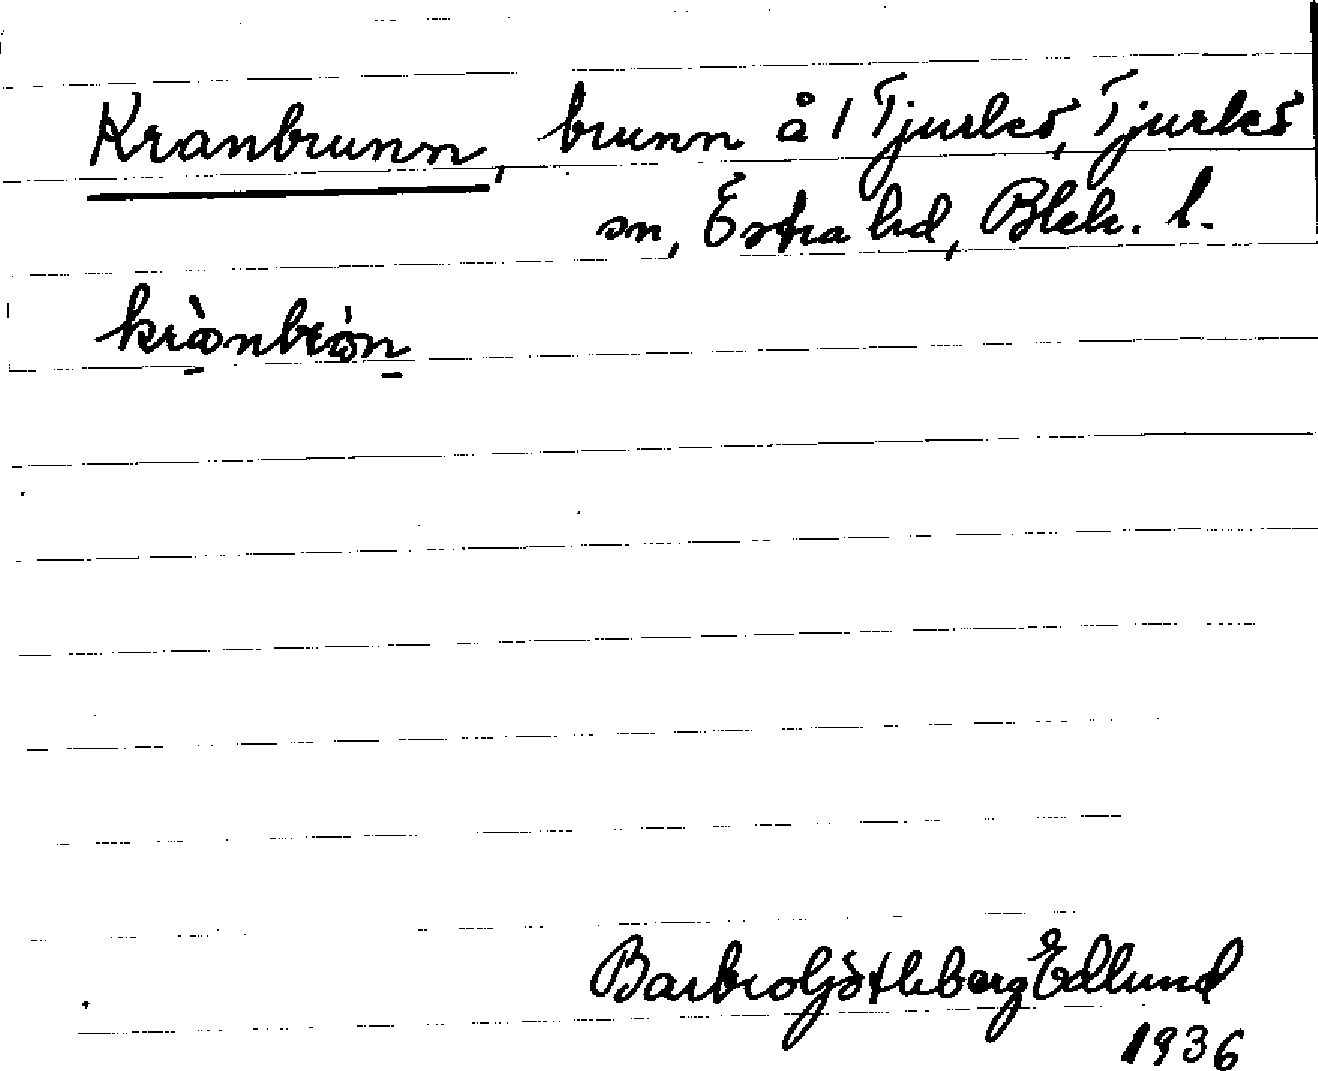 Kranbrunn, brunn å 1 Tjurkö, Tjurkö
sn, Östra hd, Blek. l.
krànbrón
Barbro Götleborg Edlund
1936